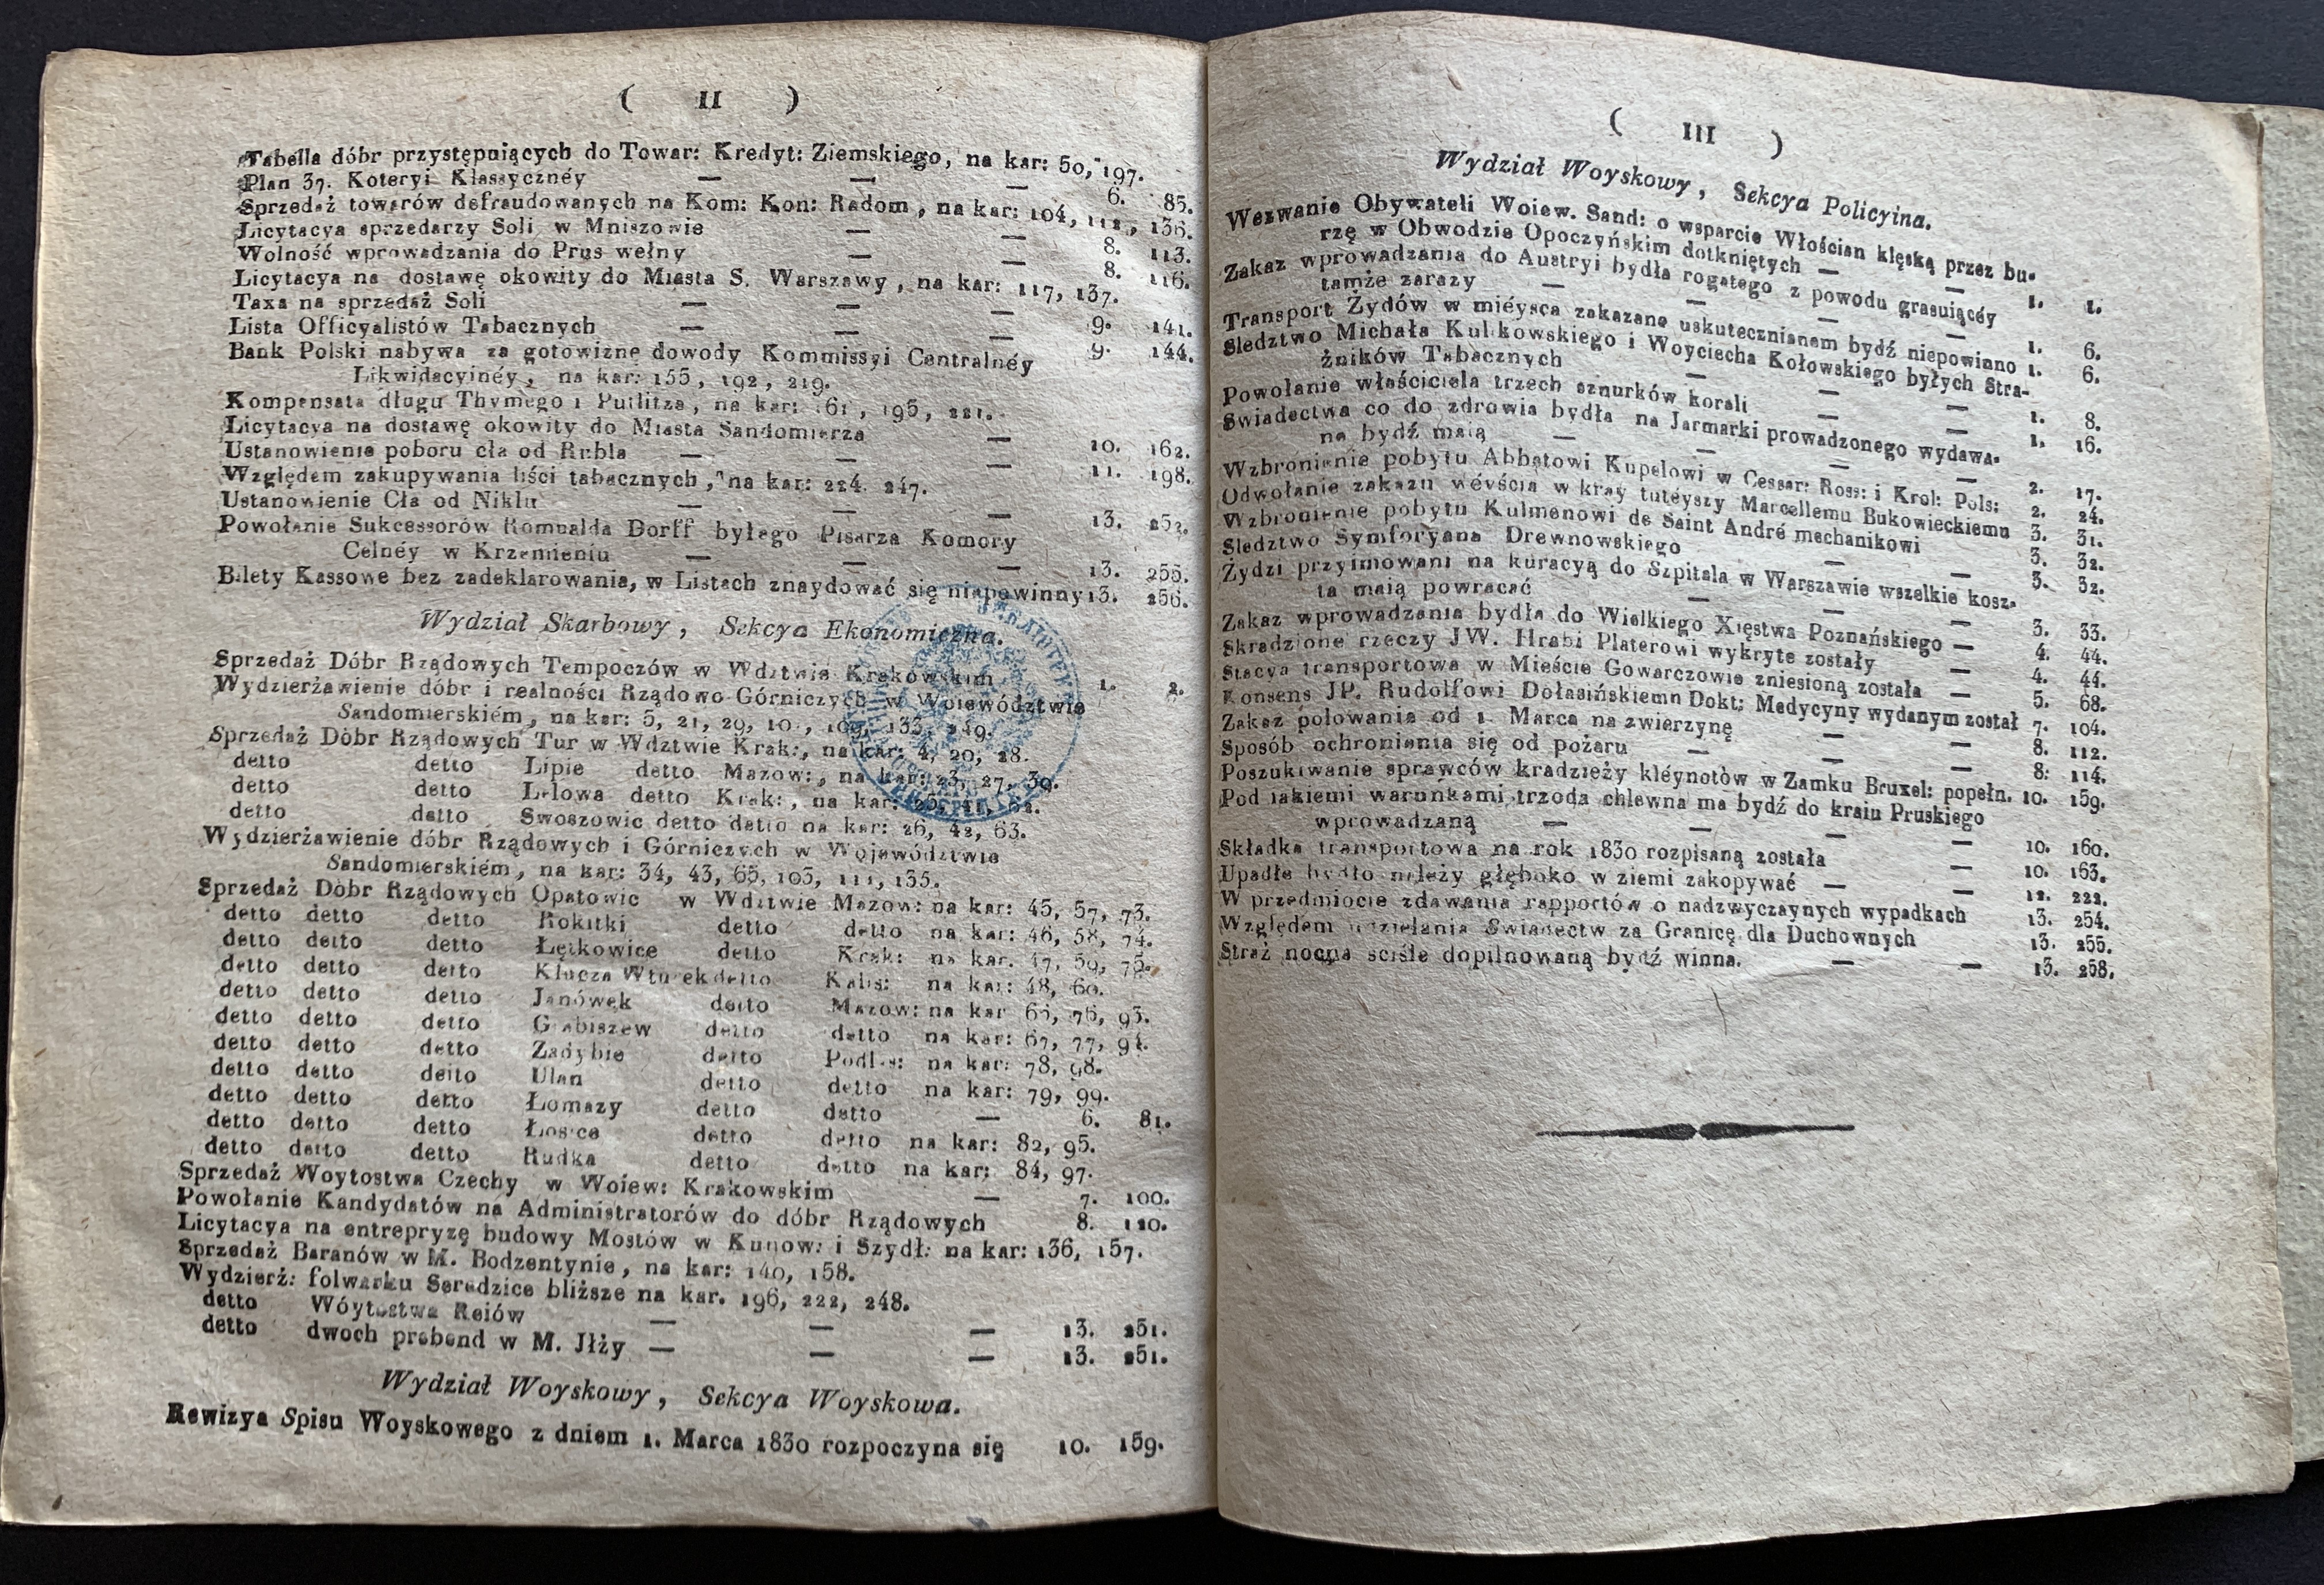 ( II )
Tabella dóbr przystępuiących do Towar: Kredyt: Ziemskiego, na kar: 50, 197.
Plan 37. Koteryi Klassycznéy — — — 6. 85.
Sprzedaż towarów defraudowanych na Kom: Kon: Radom, na kar: 104, 112, 136.
Licytacya sprzedarzy Soli w Mniszowie — — 8. 113.
Wolność wprowadzania do Prus wełny — — 8. 116.
Licytacya na dostawę okowity do Miasta S. Warszawy, na kar: 117, 137.
Taxa na sprzedaż Soli — — — 9. 141.
Lista Officyalistów Tabacznych — — — 9. 144.
Bank Polski nabywa za gotowiznę dowody Kommissyi Centralnéy
Likwidacyinéy, na kar: 155, 192, 219.
Kompensata długu Thymego i Putlitza, na kar: 161, 195, 221.
Licytacya na dostawę okowity do Miasta Sandomierza — 10. 162.
Ustanowienie poboru cła od Rubla — — — 11. 198.
Względem zakupywania liści tabacznych, na kar: 224. 247.
Ustanowienie Cła od Niklu — — — 13. 252.
Powołanie Sukcessorów Romualda Dorff byłego Pisarza Komory
Celnéy w Krzemieniu — — — 13. 255.
Bilety Kassowe bez zadeklarowania, w Listach znaydować się niepowinny 13. 256.
Wydział Skarbowy, Sekcya Ekonomiczna.
Sprzedaż Dóbr Rządowych Tempoczów w Wdztwie Krakowskim 1. 2.
Wydzierżawienie dóbr i realności Rządowo-Górniczych w Woiewództwie
Sandomierskiém, na kar: 5, 21, 29, 101, 109, 133, 249.
Sprzedaż Dóbr Rządowych Tur w Wdztwie Krak:, na kar: 4, 20, 28.
detto detto Lipie detto Mazow:, na kar: 23, 27, 39.
detto detto Lelowa detto Krak:, na kar: 25, 41, 62.
detto detto Swoszowic detto detto na kar: 26, 42, 63.
Wydzierżawienie dóbr Rządowych i Górniczych w Województwie
Sandomierskiém, na kar: 34, 43, 65, 103, 111, 135.
Sprzedaż Dóbr Rządowych Opatowic w Wdztwie Mazow: na kar: 45, 57, 73.
detto detto detto Rokitki detto detto na kar: 46, 58, 74.
detto detto detto Łętkowice detto Krak: na kar. 47, 59, 75.
detto detto detto Klucza Wturek detto Kalis: na kar: 48, 60.
detto detto detto Janówek detto Mazow: na kar 66, 76, 93.
detto detto detto Grabiszew detto detto na kar: 67, 77, 94.
detto detto detto Zadybie detto Podlas: na kar: 78, 98.
detto detto detto Ulan detto detto na kar: 79, 99.
detto detto detto Łomazy detto detto — 6. 81.
detto detto detto Łosice detto detto na kar: 82, 95.
detto detto detto Rudka detto detto na kar: 84, 97.
Sprzedaż Woytostwa Czechy w Woiew: Krakowskim — 7. 100.
Powołanie Kandydatów na Administratorów do dóbr Rządowych 8. 110.
Licytacya na entrepryzę budowy Mostów w Kunow: i Szydł: na kar: 136, 157.
Sprzedaż Baranów w M. Bodzentynie, na kar: 140, 158.
Wydzierż: folwarku Seredzice bliższe na kar. 196, 222, 248.
detto Wóytostwa Reiów — — — 13. 251.
detto dwoch prebend w M. Jłży — — — 13. 251.
Wydział Woyskowy, Sekcya Woyskowa.
Rewizya Spisu Woyskowego z dniem 1. Marca 1830 rozpoczyna się 10. 159.
( III )
Wydział Woyskowy, Sekcya Policyina.
Wezwanie Obywateli Woiew. Sand: o wsparcie Włościan klęską przez bu-
rzę w Obwodzie Opoczyńskim dotkniętych — — 1. 1.
Zakaz wprowadzania do Austryi bydła rogatego z powodu grasuiącéy
tamże zarazy — — — — 1. 6.
Transport Żydów w miéysca zakazane uskutecznianem bydź niepowinno 1. 6.
Sledztwo Michała Kulikowskiego i Woyciecha Kołowskiego byłych Stra-
żników Tabacznych — — — 1. 8.
Powołanie właściciela trzech sznurków korali — — 1. 16.
Swiadectwa co do zdrowia bydła na Jarmarki prowadzonego wydawa-
ne bydź maią — — — — 2. 17.
Wzbronienie pobytu Abbatowi Kupelowi w Cessar: Ross: i Krol: Pols: 2. 24.
Odwołanie zakazu wéyścia w kray tutéyszy Marcellemu Bukowieckiemu 3. 31.
Wzbronienie pobytu Kulmenowi de Saint André mechanikowi 3. 32.
Sledztwo Symforyana Drewnowskiego — — 3. 32.
Żydzi przyimowani na kuracyą do Szpitala w Warszawie wszelkie kosz-
ta maią powracać — — — 3. 33.
Zakaz wprowadzania bydła do Wielkiego Xięstwa Poznańskiego — 4. 44.
Skradzione rzeczy JW. Hrabi Platerowi wykryte zostały — 4. 44.
Stacya transportowa w Mieście Gowarczowie zniesioną została — 5. 68.
Konsens JP. Rudolfowi Dołasińskiemn Dokt: Medycyny wydanym został 7. 104.
Zakaz polowania od 1. Marca na zwierzynę — — 8. 112.
Sposób ochronienia się od pożaru — — — 8. 114.
Poszukiwanie sprawców kradzieży kléynotòw w Zamku Bruxel: popełn. 10. 159.
Pod iakiemi warunkami trzoda chlewna ma bydź do kraiu Pruskiego
wprowadzaną — — — — 10. 160.
Składka transportowa na rok 1830 rozpisaną została — 10. 163.
Upadłe bydło należy głęboko w ziemi zakopywać — — 12. 222.
W przedmiocie zdawania rapportów o nadzwyczaynych wypadkach 13. 254.
Względem udzielania Swiadectw za Granicę dla Duchownych 13. 255.
Straż nocna sciśle dopilnowaną bydź winna. — — 13. 258.